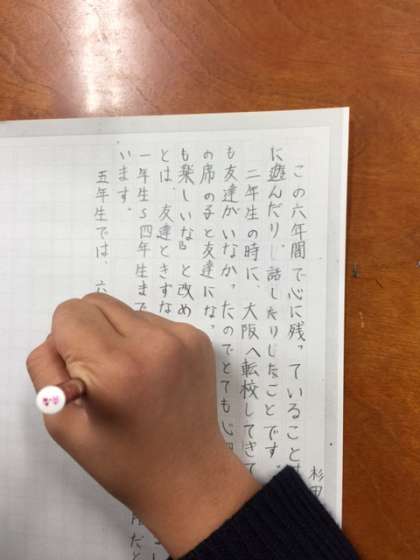 杉
この六年間で心に残っていること
に遊んだり、話したりしたことです。
二年生の時に、大阪へ転校してきて
も友達がいなかったのでとても心
の席の子と友達にな
も楽しいな』と改め
とは、友達ときずな
一年生〜四年生まで
います。
五年生では、六